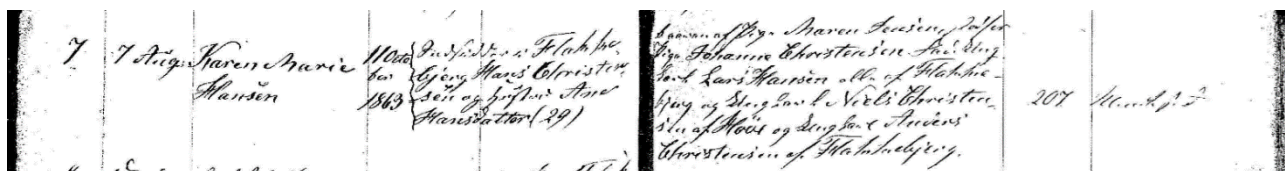 7 7 Aug. Karen Marie
Hansen
11 Octo
ber
1863
Indsidder i Flakke-
bjerg Hans Christen-
sen og Hustru Ane
Hansdatter (29)
baaren af Pige Maren Jensen,
Pige Johanne Christensen Ung
karl Lars Hansen alle af Flakke-
bjerg og Ungkarl Niels Christen-
sen af og Ungkarl Anders
Christensen af Flakkebjerg.
207